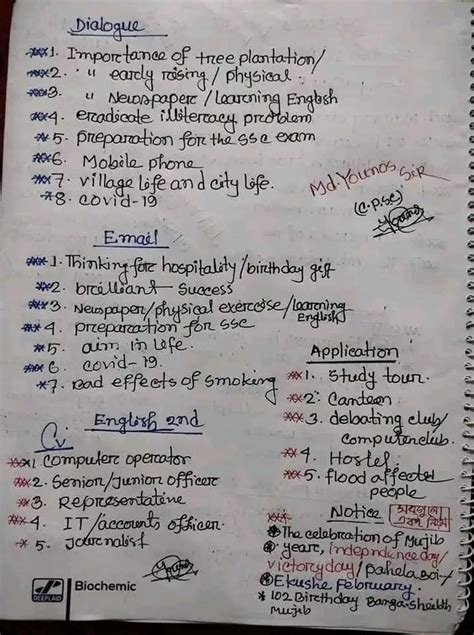 Dialogue
***1. Importance of tree plantation/
***2. " early rising / physical.
***3. " Newspaper / learning English
**4. eradicate illiteracy problem
*5. preparation for the SSC exam
**6. Mobile phone
**7. village life and city life.
*8. covid-19
Md. Younos Sir
(C.P.SC)
Email
**1. Thinking for hospitality/birthday gift
**2. brilliant success
**3. Newspaper/physical exercise/learning
English
**4. preparation for SSC
*5. aim in life.
**6. covid-19.
*7. Bad effects of smoking
Application
**1. Study tour.
**2. Canteen
**3. debating club/
computer club.
**4. Hostel
**5. flood affected
people
English 2nd
CV
***1 computer operator
**2. Senior/junior officer
*3. Representative
**4. IT/accounts officer.
*5. Journalist
Notice
The celebration of Mujib
year, independence day/
victory day / pahela boi-/
Ekushe February.
* 102 Birthday Bangasheikh
mujib
DEEPLAID
Biochemic